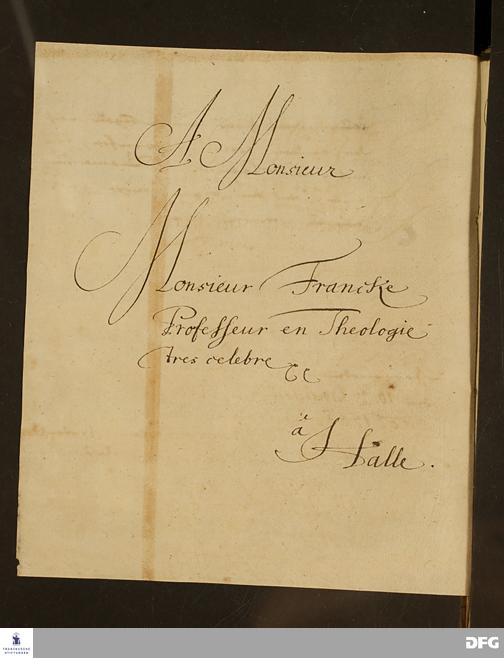 A Monsieur
Monsieur Francke
Professeur en Theologie
tres celebre
à Halle.
FRANCKESCHE
STIFTUNGEN
DFG